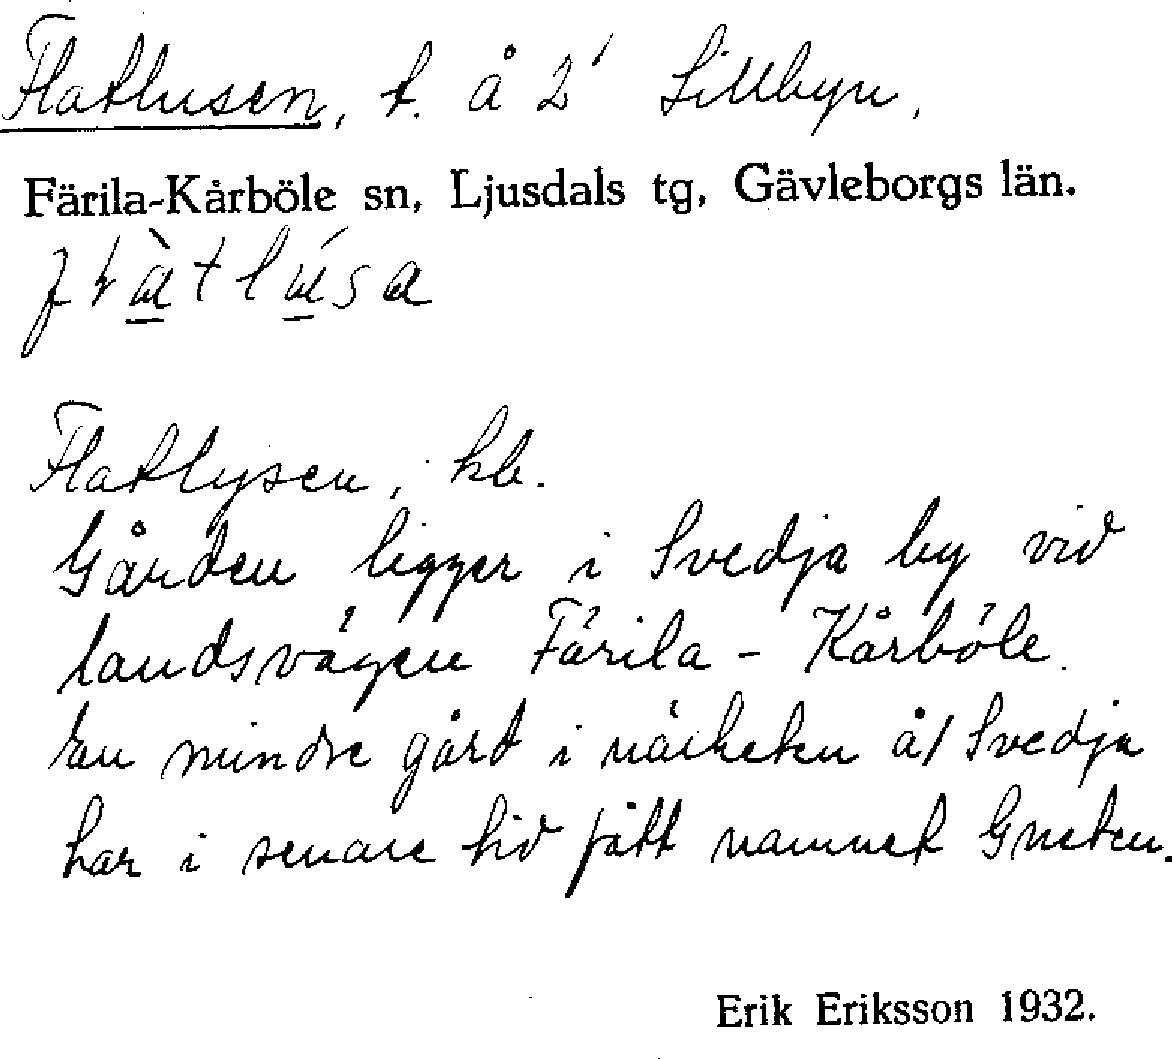 Flatlusen, t. å 2' Lillbyn,
Färila-Kårböle sn, Ljusdals tg, Gävleborgs län.
Flatlysen, kb.
Gården ligger i Svedja by vid
landsvägen Färila - Kårböle.
En mindre gård i närheten å/ Svedja
har i senare tid fått namnet Gneten.
Erik Eriksson 1932.